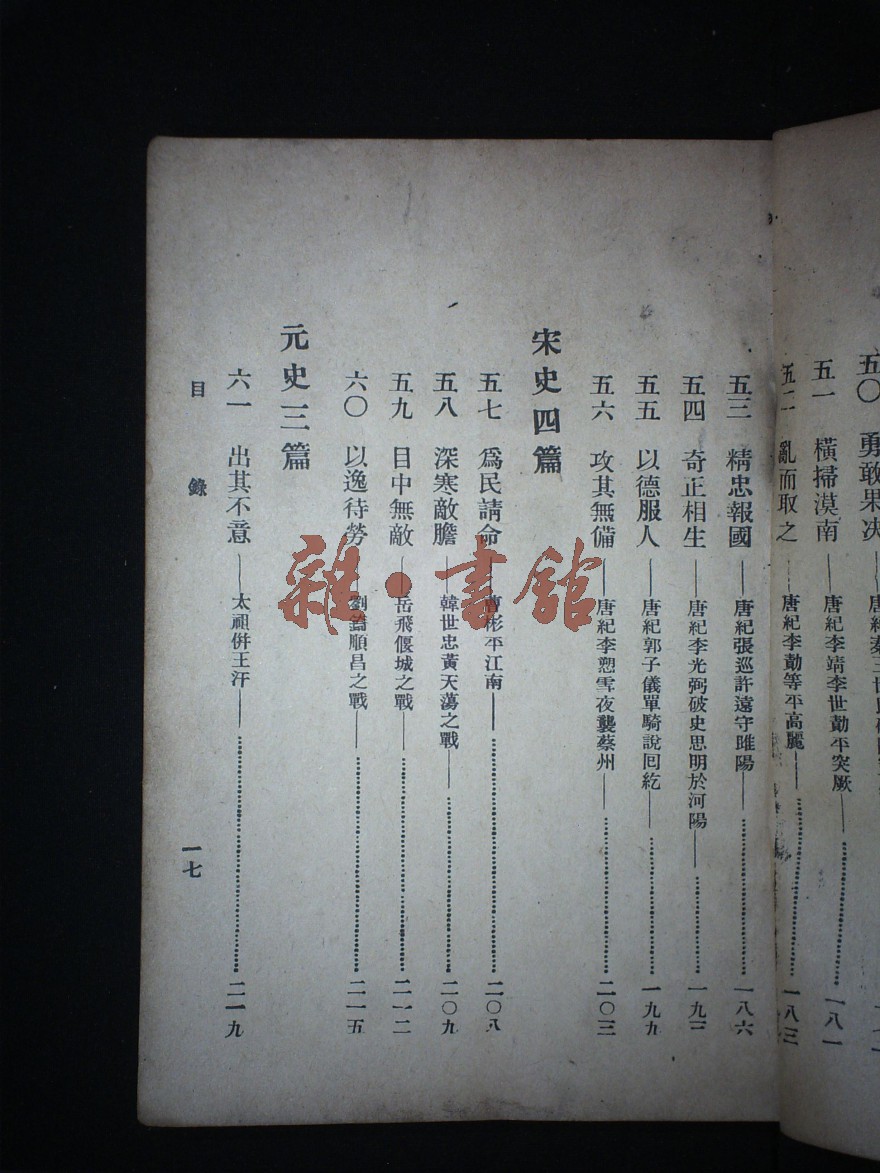 五〇 勇敢果決
五一 橫掃漠南——唐紀李靖李世勣平突厥——一八一
五二 亂而取之——唐紀李勣等平高麗——一八三
五三 精忠報國——唐紀張巡許遠守睢陽——一八六
五四 奇正相生——唐紀李光弼破史思明於河陽——一九三
五五 以德服人——唐紀郭子儀單騎說回紇——一九九
五六 攻其無備——唐紀李愬雪夜襲蔡州——二〇三
宋史四篇
五七 爲民請命——曹彬平江南——二〇八
五八 深寒敵膽——韓世忠黃天蕩之戰——二〇九
五九 目中無敵——岳飛偃城之戰——二一二
六〇 以逸待勞——劉錡順昌之戰——二一五
元史三篇
六一 出其不意——太祖併王汗——二一九
目錄
一七
雜·書館